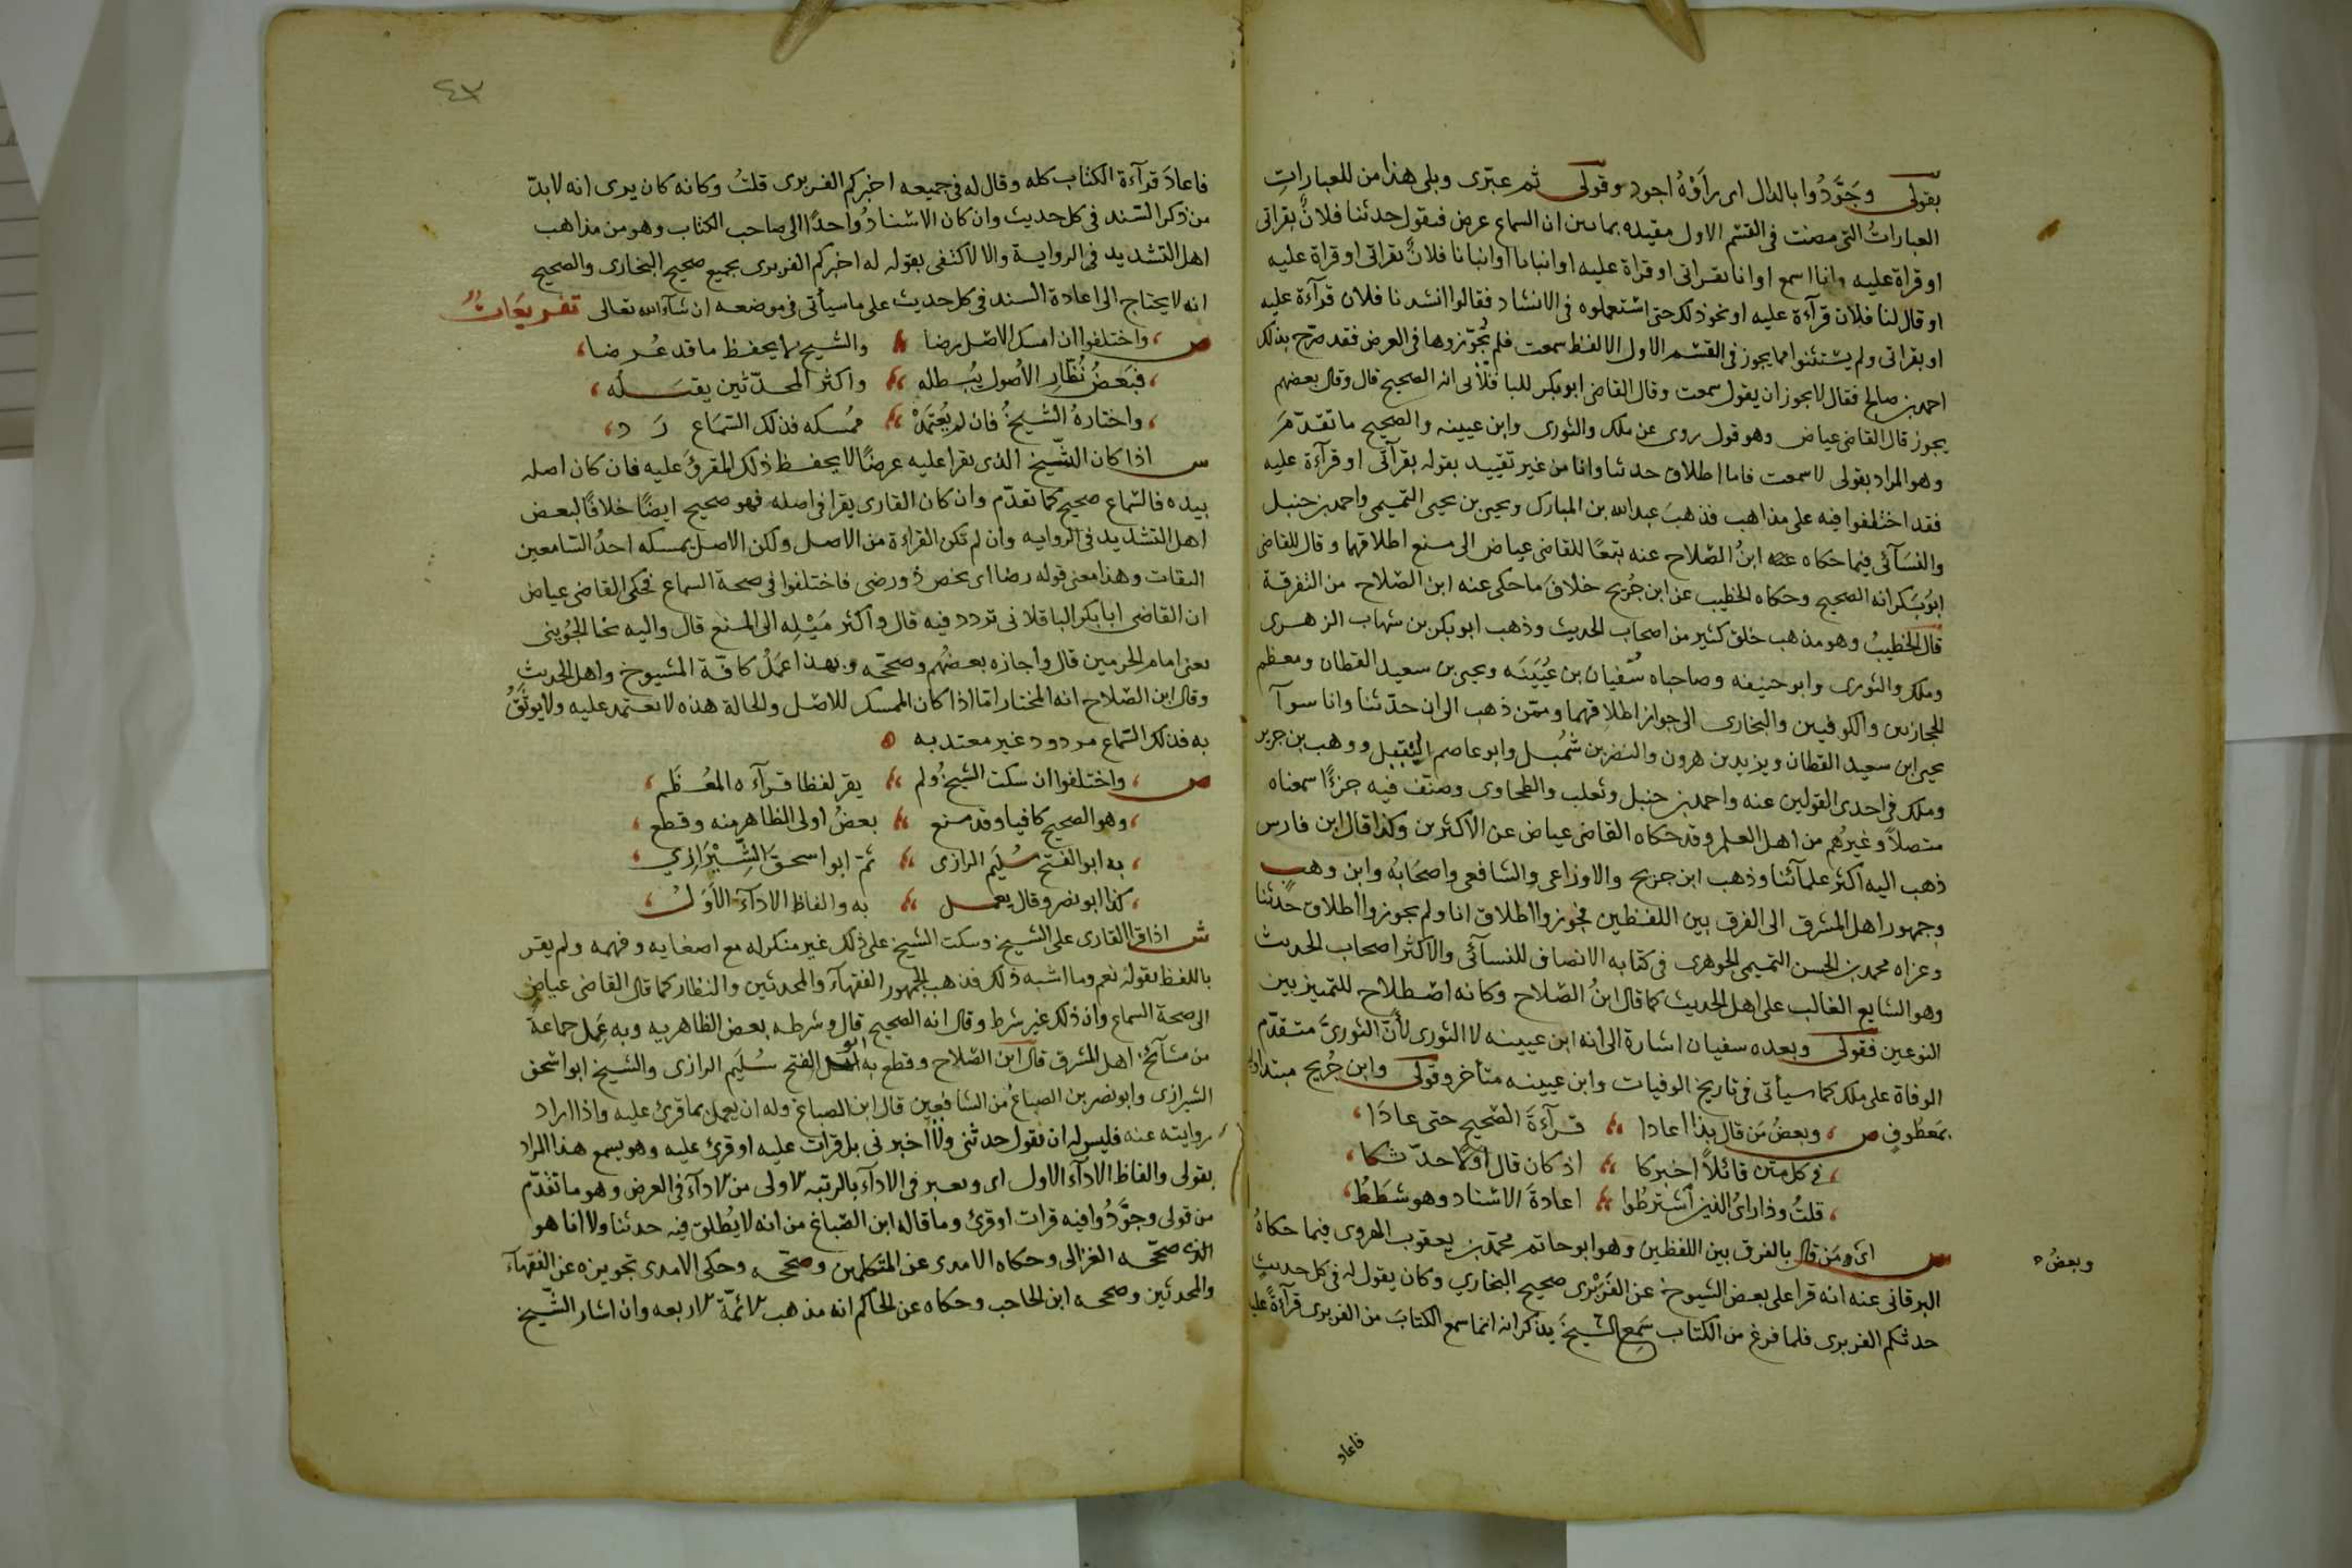 بقولى وجَوَّدُوا بالدال اى رأَوْهُ اجود وقولى ثم عبّرى وبلى هذا من للعبارات
العباراتُ التى مضت فى القسم الاول مقيده بما يبين ان السماع عرض فيقول حدثنا فلانٌ بقراتى
او قراة عليه وانا اسمع او انا بقراتى او قراة عليه او انبانا او نبانا فلانٌ بقراتى او قراة عليه
او قال لنا فلان قرآءة عليه او نحو ذلك حتى استعملوه فى الانشاد فقالوا انشدنا فلان قرآءة عليه
او بقراتى ولم يستثنوا مما يجوز فى القسم الاول الا لفظ سمعت فلم يُجوّزوها فى العرض فقد صرّح بذلك
احمد بن صالح فقال لا يجوز ان يقول سمعت وقال القاضى ابوبكر البا قلانى انه الصحيح قال وقال بعضهم
يجوز قال القاضى عياض وهو قول روى عن ملك والثورى وابن عيينه والصحيح ما تقدّمَ
وهو المراد بقولى لا سمعت فاما اطلاق حدثنا وانا من غير تقييد بقوله بقرآتى او قرآءة عليه
فقد اختلفوا فيه على مذاهب فذهبَ عبدالله بن المبارك ويحيى بن يحيى التميمى واحمد بن حنبل
والنسَآئى فيما حكاه عنه ابنُ الصّلاح عنه تبعًا للقاضى عياض الى منع اطلاقهما وقال القاضى
ابوبَكر انه الصحيح وحكاه الخطيب عن ابن جُريج خلافَ ما حكى عنه ابن الصّلاح من التفرقة
قال الخطيبُ وهو مذهب خلق كثير من اصحاب الحديث وذهب ابو بكر بن شهاب الزهرى
وملك والثورى وابو حنيفه وصاحباه سُفيان بن عُيَينَه ويحيى بن سعيد القطان ومعظم
الحجازيين والكوفيين والبخارى الى جواز اطلاقهما وممّن ذهب الى ان حدّثنا وانا سوآ
يحيى ابن سعيد القطان ويزيد بن هرون والنضر بن شُميل وابو عاصم النبيل ووهب بن جرير
وملك فى احدى القولين عنه واحمد بن حنبل وثعلب والطحاوى وصنّف فيه جزءًا سمعناه
متصلاً وغيرُهم من اهل العلم وقد حكاه القاضى عياض عن الاكثرين وكذا قال ابن فارس
ذهب اليه اكثر علمآئنا وذهب ابن جريج والاوزاعى والشافعى واصحَابُه وابن وهب
وجمهور اهل المشرق الى الفرق بين اللفظين فجوزوا اطلاق انا ولم يجوزوا اطلاق حدثنا
وعزاه محمد بن الحسن التميمى الجوهرى فى كتابه الانصاف للنسآئى والاكثر اصحاب الحديث
وهو الشايع الغالب على اهل الحديث كما قال ابنُ الصّلاح وكانه اصطلاح للتمييز بين
النوعين فقولى وبعده سفيان اشارة الى انه ابن عيينه لا الثورى لأنّ الثورىَّ متقدّم
الوفاة على ملك كما سيأتى فى تاريخ الوفيات وابن عيينه متأخر وقولى وابن جُريج مبتدا
بمَعطوفٍ ص وبعضُ مَن قال بذا اعادا قرآءَةَ الصّحيحِ حتى عادَا
فى كل متن قائلاً اخبركا اذ كان قال اولا حدّثكا
قلتُ وذا راىُ الذين اشترطوا اعادةَ الاسناد وهو شَطَطُ
اى ومَن قال بالفرق بين اللفظين وهو ابو حاتم محمد بن يعقوب الهروى فيما حكاهُ
وبعضُ
البرقانى عنه انه قرا على بعض الشيوخ عن الفَرَبْرى صحيح البخاري وكان يقول له فى كل حديثٍ
حدثكم الفربرى فلما فرغ من الكتاب سَمِع الشيخَ يذكر انه انما سمع الكتابَ من الفربرى قرآءةً عليه
فاعاد
٤٣
فاعادَ قرآءة الكتاب كله وقال له فى جميعه اخبركم الفربرى قلتُ وكانه كان يرى انه لابدّ
من ذكر السّند فى كل حديث وان كان الاسنادُ واحدًا الى صاحب الكتاب وهو من مذاهب
اهل التشديد فى الرواية والا لاكتفى بقوله له اخبركم الفربرى بجميع صحيح البخارى والصحيح
انه لا يحتاج الى اعادة السند فى كل حديث على ما سيأتى فى موضعه ان شآء الله تعالى تفريعَاتٌ
ص واختلفوا ان امسك الاصل رضا والشيخ لا يحفظ ما قد عُرضا
فبَعَضُ نُظّارِ الأصُول يُبطله واكثر المحدّثين يقبَله
واختارهُ الشيخُ فان لم يُعْتَمَدْ ممُسكه فذلك السّماع رَد
س اذا كان الشّيخ الذى يقرا عليه عرضًا لا يحفظ ذلك المقرؤَ عليه فان كان اصله
بيده فالسّماع صحيح كما تقدّم وان كان القارى يقرا فى اصله فهو صحيح ايضًا خلافًا لبعض
اهل التشديد فى الروايه وان لم تكن القراءة من الاصل ولكن الاصل يمسكه احدُ السّامعين
الثقات وهذا معنى قوله رضا اى شخص ذو رضى فاختلفوا فى صحة السماع فحكى القاضى عياض
ان القاضى ابا بكر الباقلانى تردد فيه قال واكثر مَيْلِه الى المنع قال واليه نحا الجُوينى
يعنى امام الحرمين قال واجازه بعضُهم وصحّحه وبهذا عَمَلُ كافّة الشيوخ واهل الحديث
وقال ابن الصّلاح انه المختار امّا اذا كان الممسك للاصل والحالة هذه لا يعتمد عليه ولا يوثَقُ
به فذلك السّماع مردود غير معتد به ه
ص واختلفوا ان سكت الشيخُ ولم يقر لفظا فرآه المُعظَم
وهو الصحيح كافيا وقد منع بعضُ اولى الظاهر منه وقطع
به ابو الفتح سُلَيم الرازى ثمّ ابو اسحق الشّيْرَازي
كذا ابو نصر وقال يعمل به والفاظ الادآءَ الأوَلُ
ش اذا قرا القارى على الشيخ وسكت الشيخ على ذلك غير منكر له مع اصغايه وفهمه ولم يقر
باللفظ بقوله نعم وما اشبه ذلك فذهب جمهور الفقهآء والمحدثين والنظار كما قال القاضى عياض
الى صحة السماع وان ذلك غير شرط وقال انه الصحيح قال وشرطه بعض الظاهريه وبه عَمِل جماعةٌ
من مشآئخ اهل المشرق قال ابن الصّلاح وقطع به ابو الفتح سُلَيم الرازى والشيخ ابو اسحق
الشيرازى وابو نصر بن الصباغ من الشافعيين قال ابن الصباغ وله ان يعمل بما قرئ عليه واذا اراد
روايته عنه فليس له ان يقول حدثنى ولا اخبرنى بل قرات عليه او قرئ عليه وهو يسمع هذا المراد
بقولى والفاظ الادآء الاول اى ويعبر فى الادآء بالرتبه الاولى من الادآء فى العرض وهو ما تقدّم
من قولى وجَوَّدُوا فيه قرات او قرئ وما قاله ابن الصّباغ من انه لا يُطلق فيه حدثنا ولا انا هو
الذى صحّحه الغزالى وحكاه الامدى عن المتكلمين وصحّحه وحكى الامدى تجويزه عن الفقهآء
والمحدثين وصححه ابن الحاجب وحكاه عن الحاكم انه مذهب الائمّة الاربعه وان اشار الشّيخ